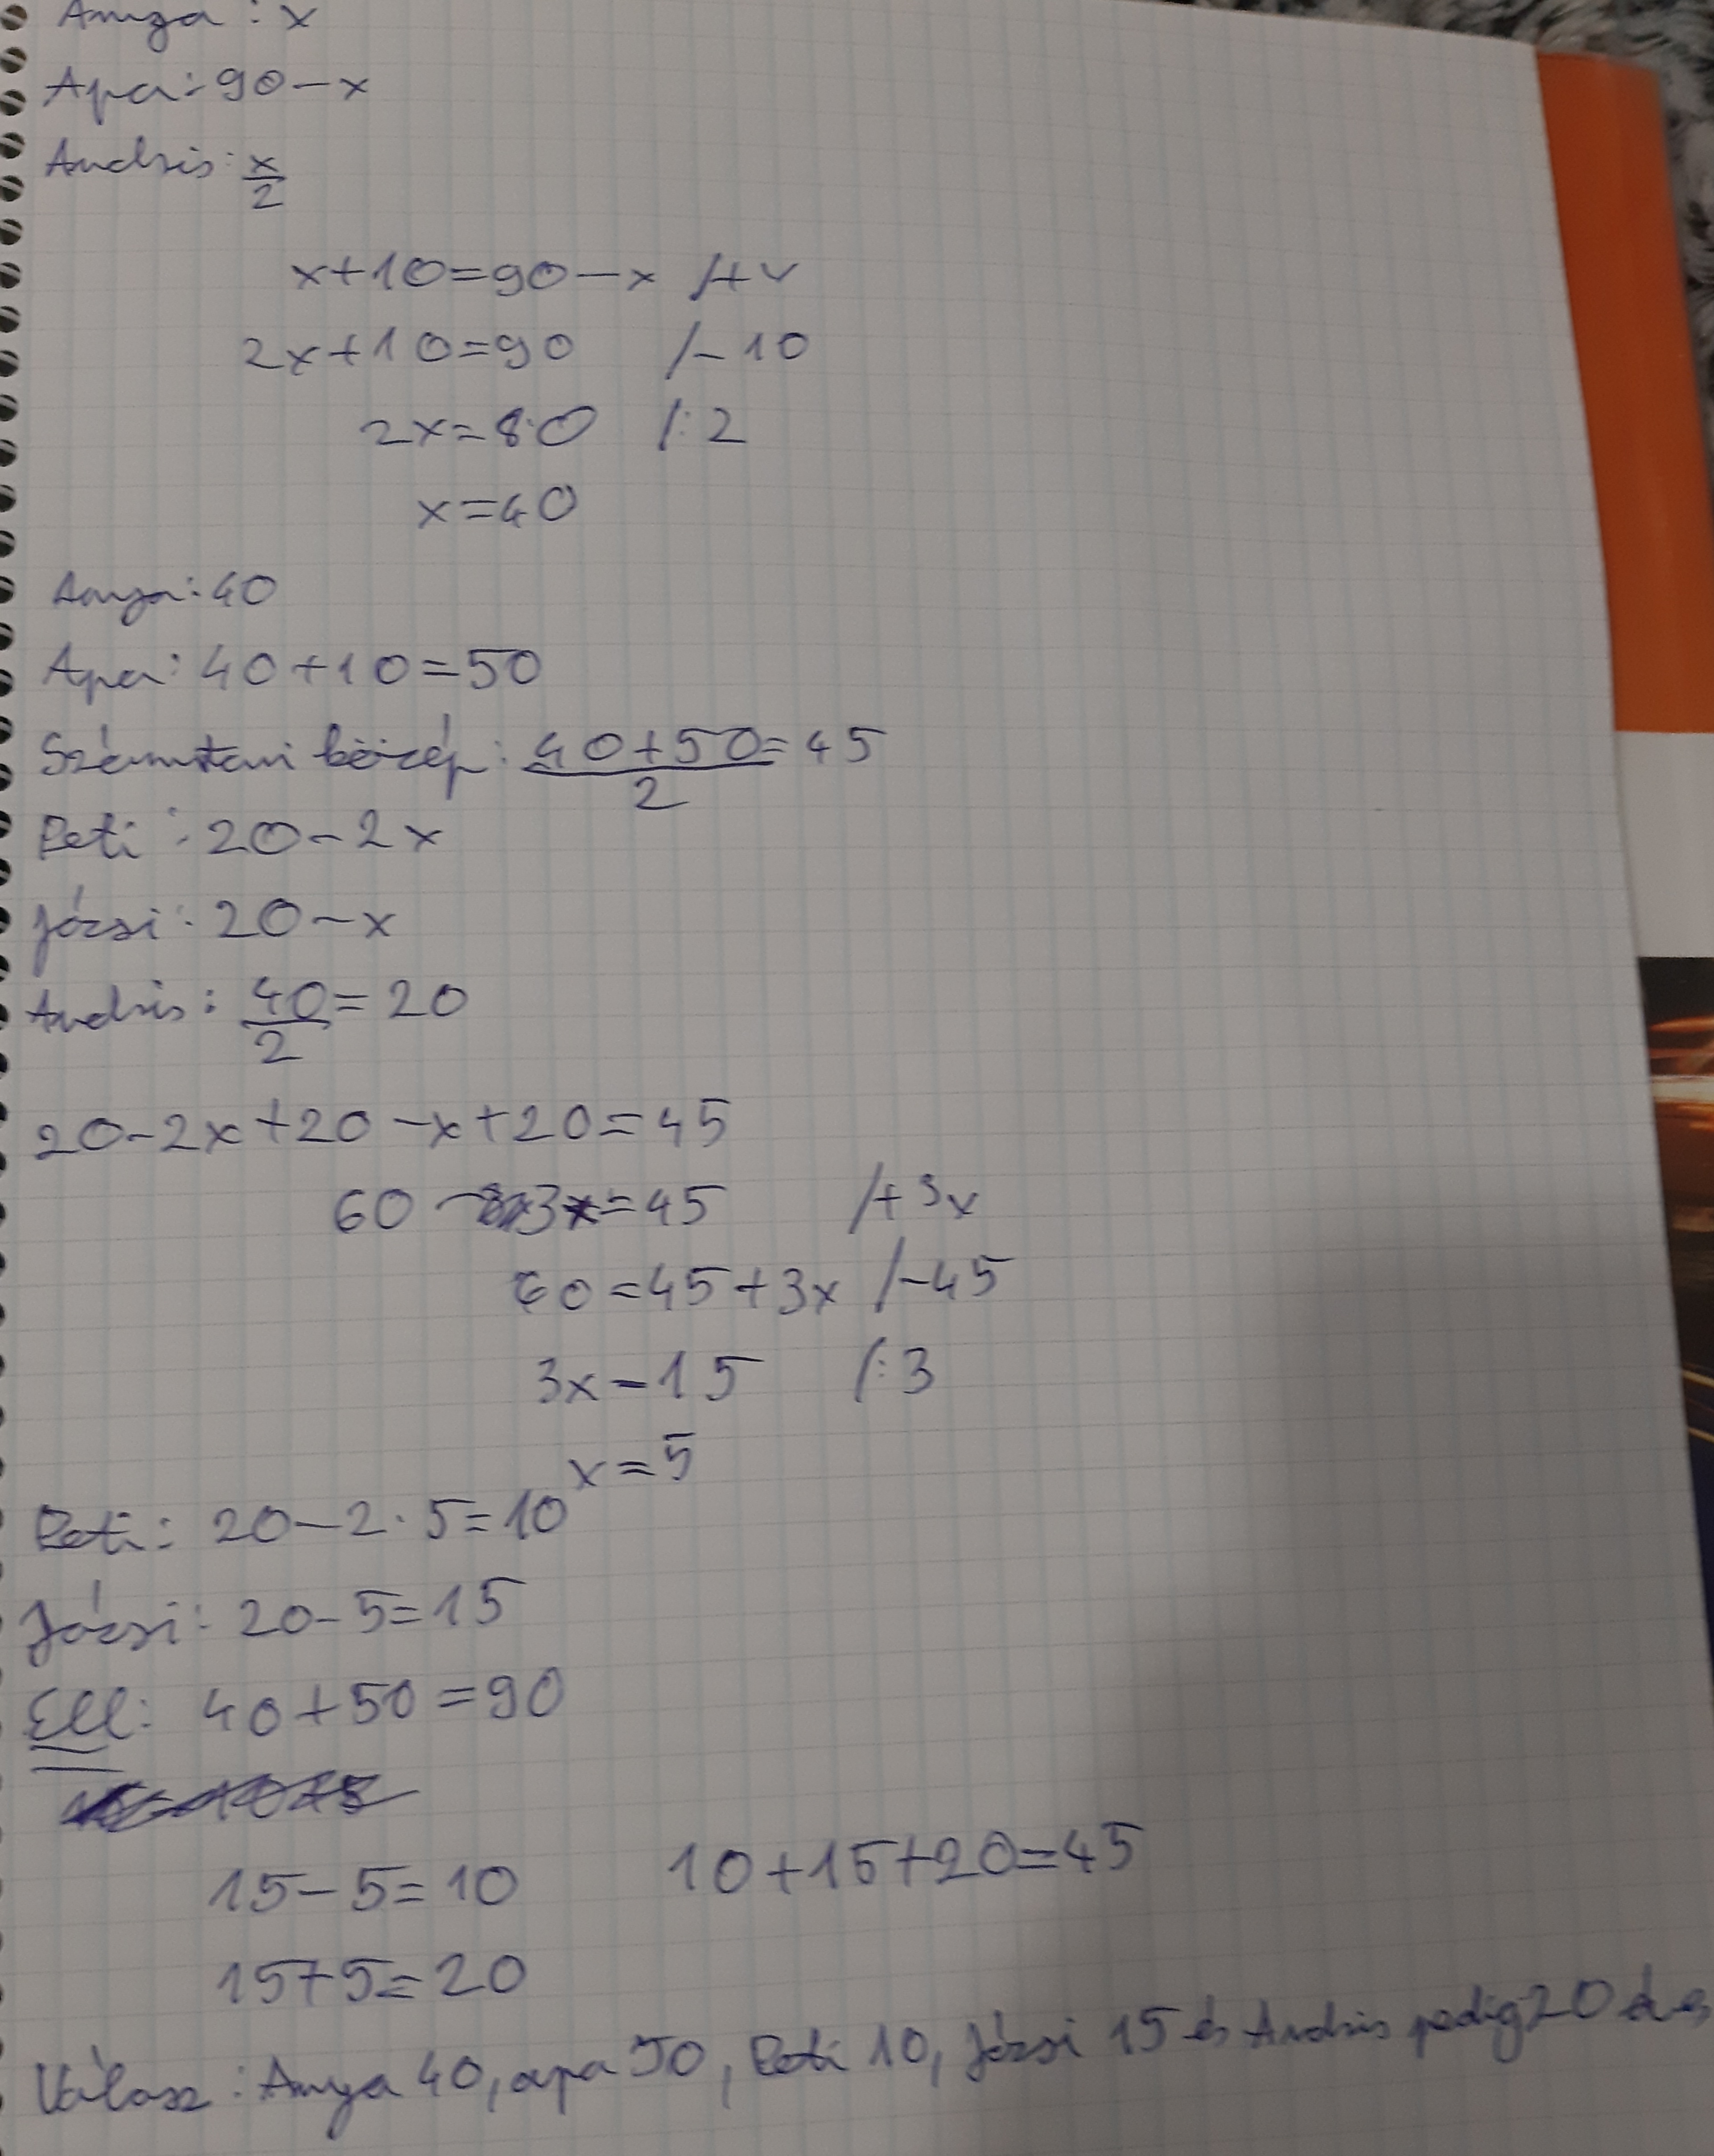 Anya: x
Apa: 90-x
Andris: x/2
x+10=90-x /+x
2x+10=90 /-10
2x=80 /:2
x=40
Anya: 40
Apa: 40+10=50
Számtani közép: (40+50)/2=45
Peti: 20-2x
Józsi: 20-x
Andris: 40/2=20
20-2x+20-x+20=45
60-3x=45 /+3x
60=45+3x /-45
3x=15 /:3
x=5
Peti: 20-2·5=10
Józsi: 20-5=15
Ell: 40+50=90
15-5=10 10+15+20=45
15+5=20
Válasz: Anya 40, apa 50, Peti 10, Józsi 15 és Andris pedig 20 éves